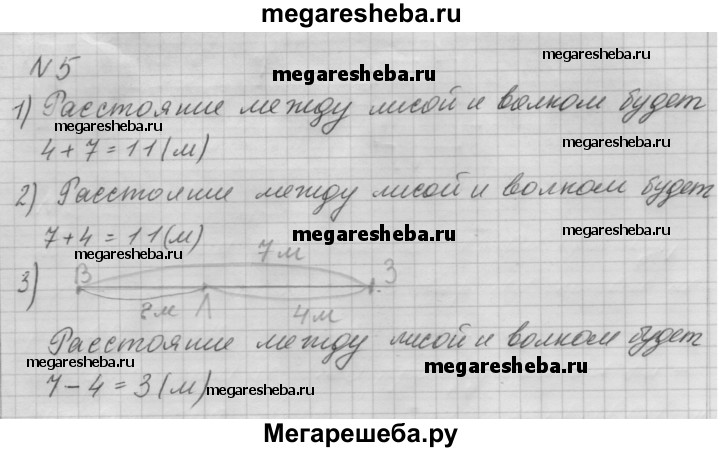 megaresheba.ru
N 5
megaresheba.ru
megaresheba.ru
1) Расстояние между лисой и волком будет
megaresheba.ru
megaresheba.ru
4 + 7 = 11 (м)
2) Расстояние между лисой и волком будет
7 + 4 = 11 (м)
megaresheba.ru
megaresheba.ru
megaresheba.ru
7 м
3) В Л З
? м 4 м
Расстояние между лисой и волком будет
megaresheba.ru
megaresheba.ru
7 – 4 = 3 (м)
megaresheba.ru
Мегарешеба.ру